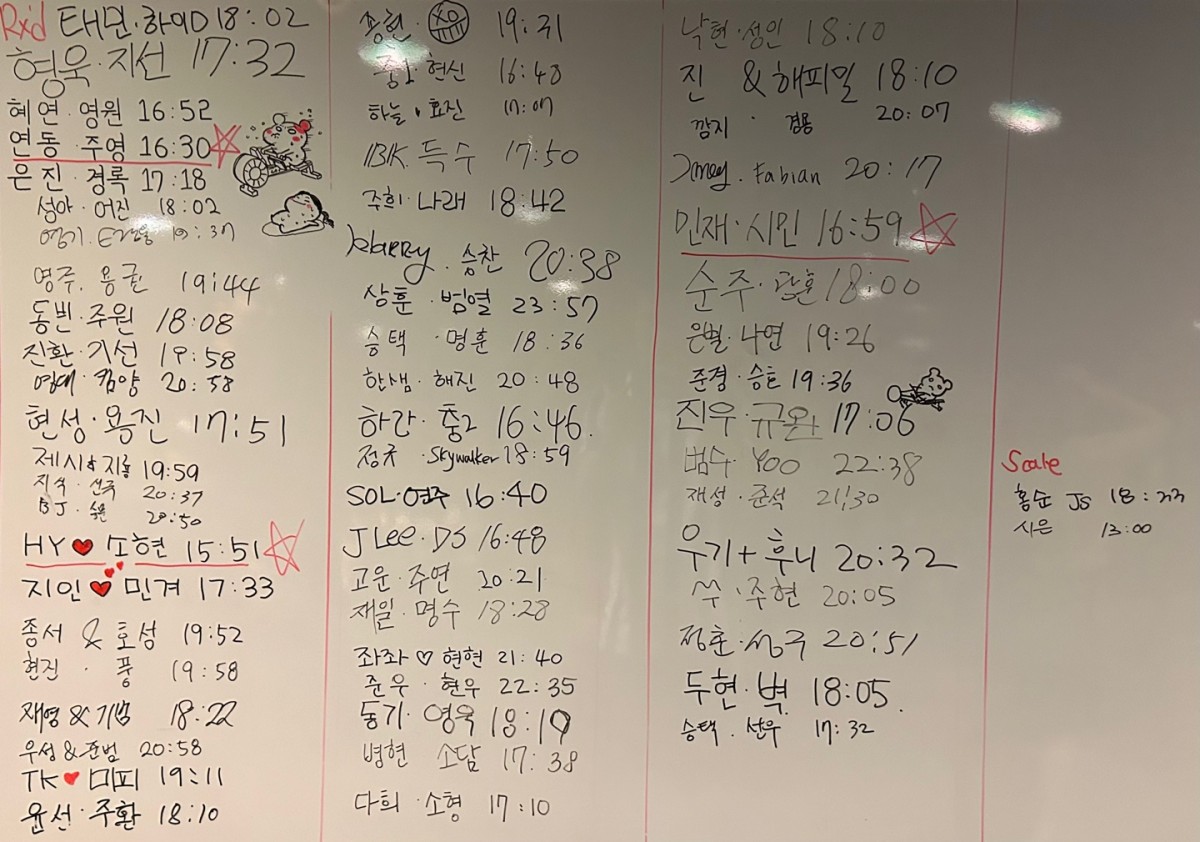 Rx'd 태민·하이D 18:02
형욱·지선 17:32
혜연·영원 16:52
연동·주영 16:30
은진·경록 17:18
성아·어진 18:02
영기. 19:37
영주. 용 19:44
동빈·주원 18:08
진환·기선 19:58
캄양 20:58
현성·용진 17:51
제시& 19:59
지석· 20:37
BJ· 20:50
HY 소현 15:51
지인 민겨 17:33
종서 & 호성 19:52
현진·풍 19:58
재영&기범 18:22
우성&준범 20:58
TK 미피 19:11
윤선·주환 18:10
19:21
충1·현신 16:48
하늘·효진 17:07
IBK 득수 17:50
주희·나래 18:42
Harry. 승찬 20:38
상훈·범열 23:57
승택·명훈 18:36
한샘·해진 20:48
하간·충2 16:46
정규·Skywalker 18:59
SOL·영주 16:40
J Lee·DS 16:48
고운·주연 20:21
재일·명수 18:28
좌좌♡현현 21:40
준우·현우 22:35
동기·영욱 18:19
병현 소담 17:38
다희·소형 17:10
낙현·성인 18:10
진 &해피일 18:10
깜지· 20:07
Fabian 20:17
민재·시민 16:59
순주·광훈 18:00
은별·나연 19:26
준경·승호 19:36
진우·규완 17:06
범수·YOO 22:38
재성·준석 21:30
우기+후니 20:32
쑤·주현 20:05
정훈·성구 20:51
두현·벽 18:05
승택·선우 17:32
Scale
홍순 JS 18:33
시은 13:00